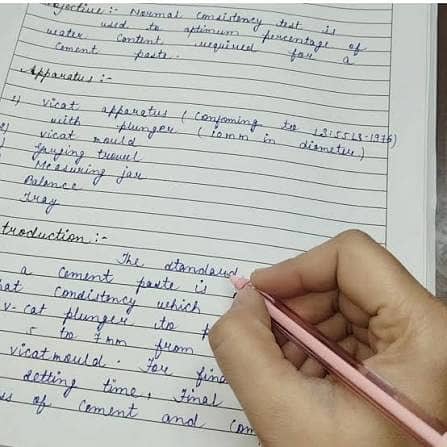 ojective:- Normal consistency test is
used to optimum percentage of
water content required for a
cement paste.
Apparatus:-
1) Vicat apparatus (Conforming to IS:5513-1976)
with plunger (10mm in diameter)
2) Vicat mould
Gauging trowel
Measuring jar
Balance
Tray
troduction:-
The standard
a cement paste is
hat consistency which
V-cat plunger to
5 to 7mm from
vicat mould. For find
setting time, Final
ss of cement and con